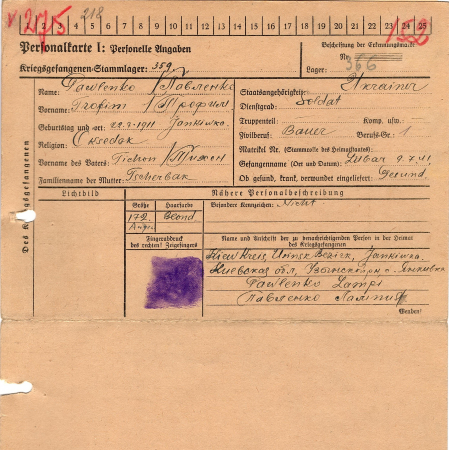 V 2175 218
1 2 3 4 5 6 7 8 9 10 11 12 13 14 15 16 17 18 19 20 21 22 23 24 25
152
Personalkarte I: Personelle Angaben
Kriegsgefangenen-Stammlager: 359
Beschriftung der Erkennungsmarke
Nr. 366
Lager:
Des Kriegsgefangenen
Name: Pawlenko / Павленко
Vorname: Trofim / Трофим
Geburtstag und -ort: 22.7.1911 Jankiwka
Religion:
Vorname des Vaters: Tichon / Тихон
Familienname der Mutter: Tscherbak
Staatsangehörigkeit: Ukrainer
Dienstgrad: Soldat
Truppenteil: Komp. usw.:
Zivilberuf: Bauer Berufs-Gr.: 1
Matrikel Nr. (Stammrolle des Heimatstaates):
Gefangennahme (Ort und Datum): Lubar 9.7.41
Ob gesund, krank, verwundet eingeliefert: Gesund
Lichtbild
Nähere Personalbeschreibung
Größe Haarfarbe
172 Blond
Besondere Kennzeichen: Nicht
Fingerabdruck
des rechten! Zeigefingers
Name und Anschrift der zu benachrichtigenden Person in der Heimat
des Kriegsgefangenen
Kiew Kreis, Bezirk, Jankiwka
Киевская обл, р-н с. Янкивка
Pawlenko Lampi
Павленко
Wenden!